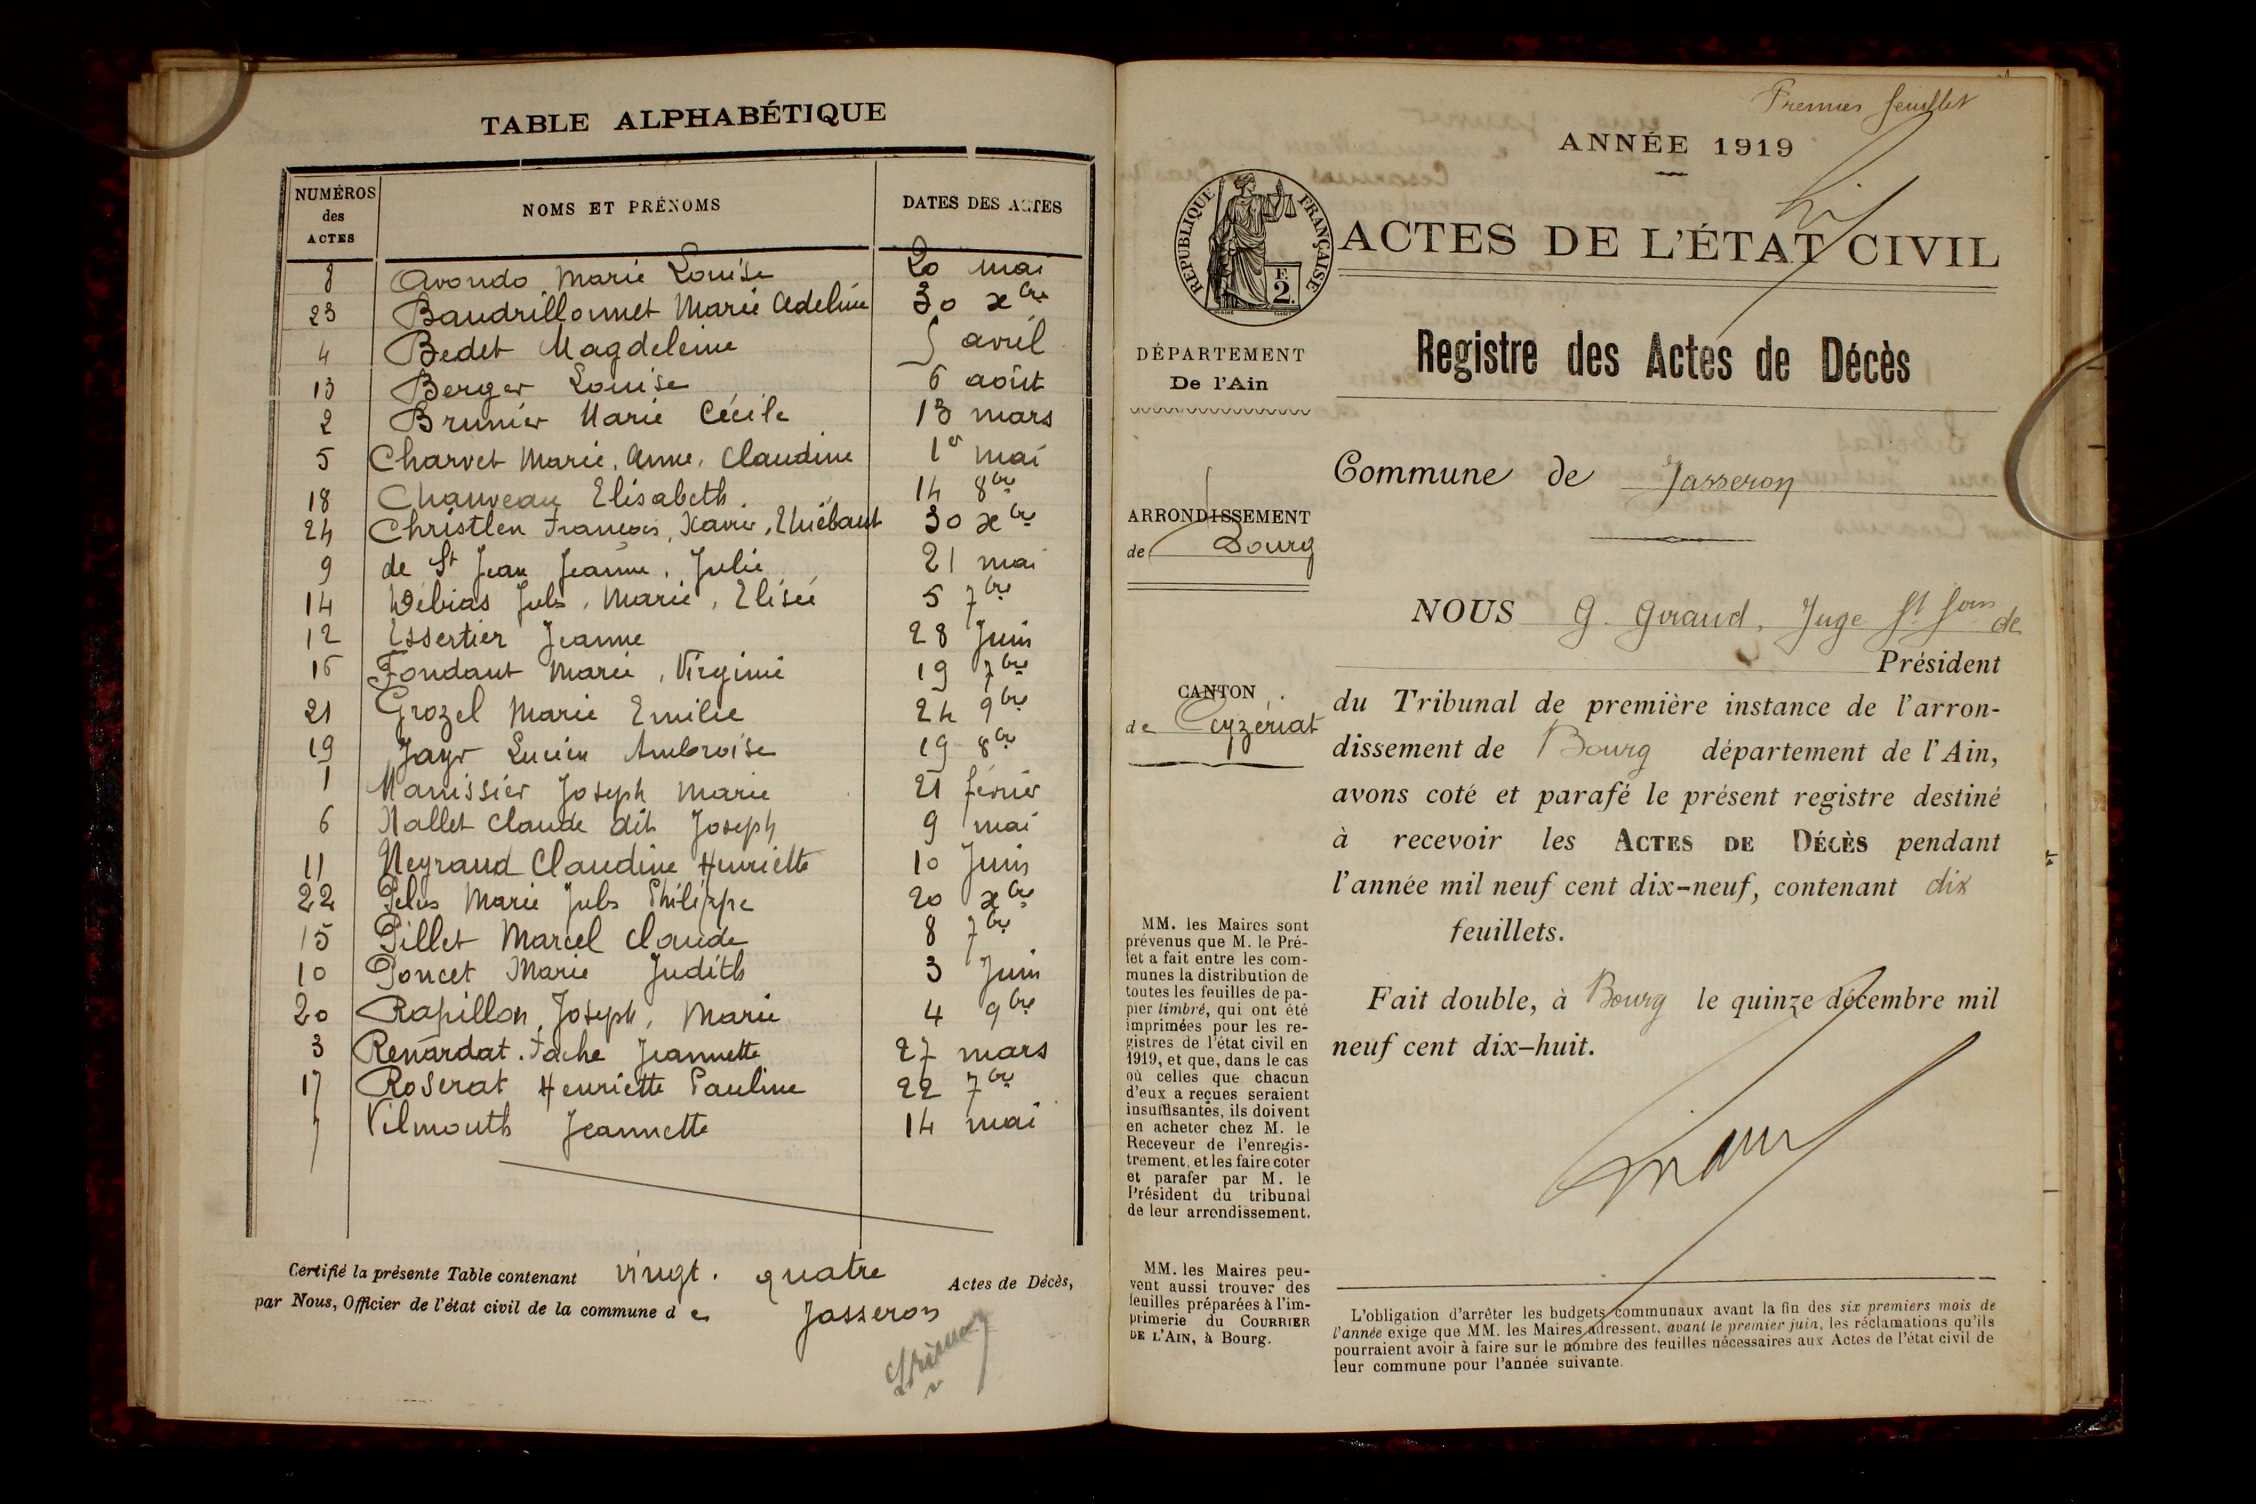 TABLE ALPHABÉTIQUE
NUMÉROS des ACTES NOMS ET PRÉNOMS DATES DES ACTES
8 Avondo Marie Louise 20 mai
23 Baudrillonnet Marie Adeline 30 xbre
4 Bedet Magdeleine 5 avril
13 Berger Louise 6 août
2 Brunier Marie Cécile 13 mars
5 Charvet Marie, Anne, Claudine 1er mai
18 Chauveau Elisabeth. 14 8bre
24 Christlen François, Xavier, Thiébaut 30 xbre
9 de St Jean Jeanne, Julie 21 mai
14 Debias Jules, Marie, Elisée 5 7bre
12 Essertier Jeanne 28 Juin
16 Fondant Marie, Virginie 19 7bre
21 Grozel Marie Emilie 24 9bre
19 Jayr Lucien Ambroise 19 8bre
1 Manissier Joseph Marie 21 février
6 Nallet Claude dit Joseph 9 mai
11 Neyraud Claudine Henriette 10 Juin
22 Pelus Marie Jules Philippe 20 xbre
15 Pillet Marcel Claude 8 7bre
10 Poncet Marie Judith 3 Juin
20 Rapillon, Joseph, Marie 4 9bre
3 Renardat. Fache Jeannette 27 mars
17 Roserat Henriette Pauline 22 7bre
7 Vilmouth Jeannette 14 mai
Certifié la présente Table contenant vingt. quatre Actes de Décès,
par Nous, Officier de l'état civil de la commune de Jasseron
Premier feuillet
ANNÉE 1919
RÉPUBLIQUE FRANÇAISE
F.
2.
ACTES DE L'ÉTAT CIVIL
DÉPARTEMENT
De l'Ain
Registre des Actes de Décès
Commune de Jasseron
ARRONDISSEMENT
de Bourg
CANTON
de Ceyzériat
NOUS G. Giraud, Juge de
Président
du Tribunal de première instance de l'arron-
dissement de Bourg département de l'Ain,
avons coté et parafé le présent registre destiné
à recevoir les ACTES DE DÉCÈS pendant
l'année mil neuf cent dix-neuf, contenant dix
feuillets.
Fait double, à Bourg le quinze décembre mil
neuf cent dix-huit.
MM. les Maires sont
prévenus que M. le Pré-
fet a fait entre les com-
munes la distribution de
toutes les feuilles de pa-
pier timbré, qui ont été
imprimées pour les re-
gistres de l'état civil en
1919, et que, dans le cas
où celles que chacun
d'eux a reçues seraient
insuffisantes, ils doivent
en acheter chez M. le
Receveur de l'enregis-
trement, et les faire coter
et parafer par M. le
Président du tribunal
de leur arrondissement.
MM. les Maires peu-
vent aussi trouver des
feuilles préparées à l'im-
primerie du COURRIER
DE L'AIN, à Bourg.
L'obligation d'arrêter les budgets communaux avant la fin des six premiers mois de
l'année exige que MM. les Maires adressent, avant le premier juin, les réclamations qu'ils
pourraient avoir à faire sur le nombre des feuilles nécessaires aux Actes de l'état civil de
leur commune pour l'année suivante.